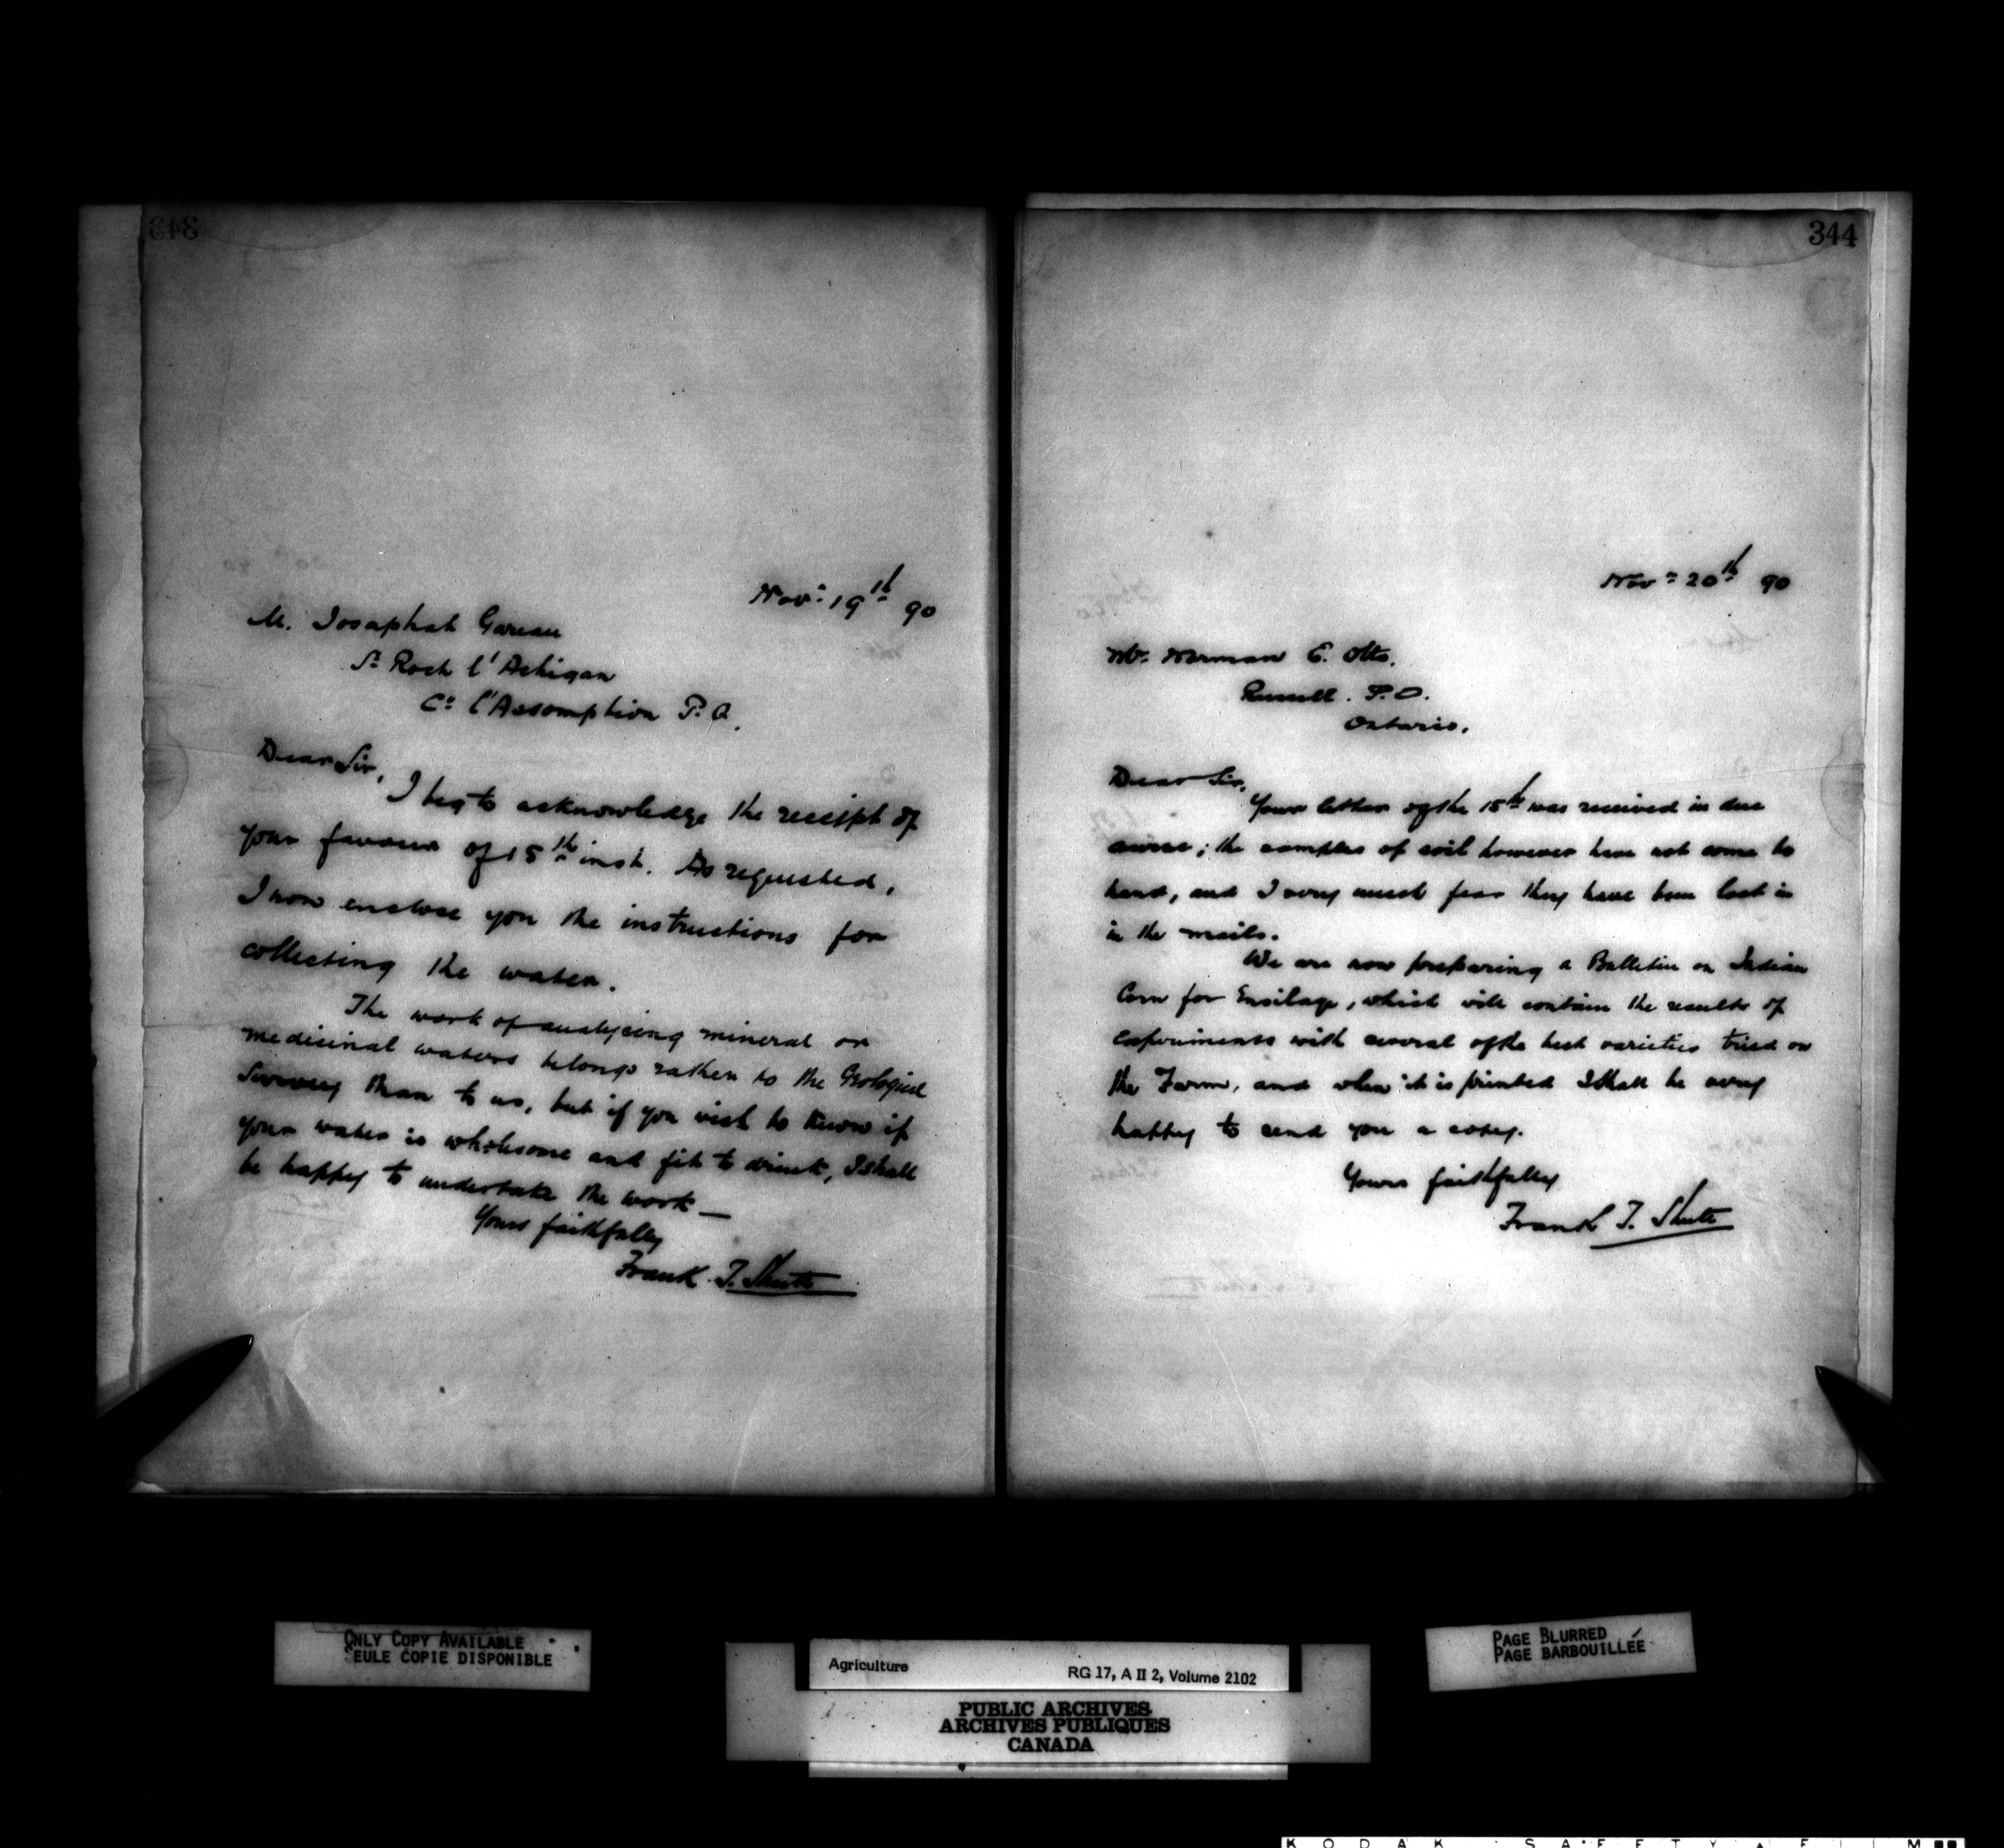 343
Nov: 19th 90
M. Josaphat Gareau
St Roch l'Achigan
Co l'Assomption P.Q.
Dear Sir,
I beg to acknowledge the receipt of
your favour of 15th inst. As requested,
I now enclose you the instructions for
collecting the water.
The work of analyzing mineral or
medicinal waters belongs rather to the Geological
Survey than to us, but if you wish to know if
your water is wholesome and fit to drink, I shall
be happy to undertake the work —
Yours faithfully
Frank T. Shutt
344
Nov: 20th 90
Mr. Norman E. Otto.
Russell. P.O.
Ontario.
Dear Sir,
Your letter of the 15th was received in due
course; the samples of soil however have not come to
hand, and I very much fear they have been lost in
in the mails.
We are now preparing a Bulletin on Indian
Corn for Ensilage, which will contain the results of
experiments with several of the best varieties tried on
the Farm, and when it is printed I shall be very
happy to send you a copy.
Yours faithfully
Frank T. Shutt
ONLY COPY AVAILABLE
SEULE COPIE DISPONIBLE
PAGE BLURRED
PAGE BARBOUILLÉE
Agriculture RG 17, A II 2, Volume 2102
PUBLIC ARCHIVES
ARCHIVES PUBLIQUES
CANADA
KODAK SAFETY FILM